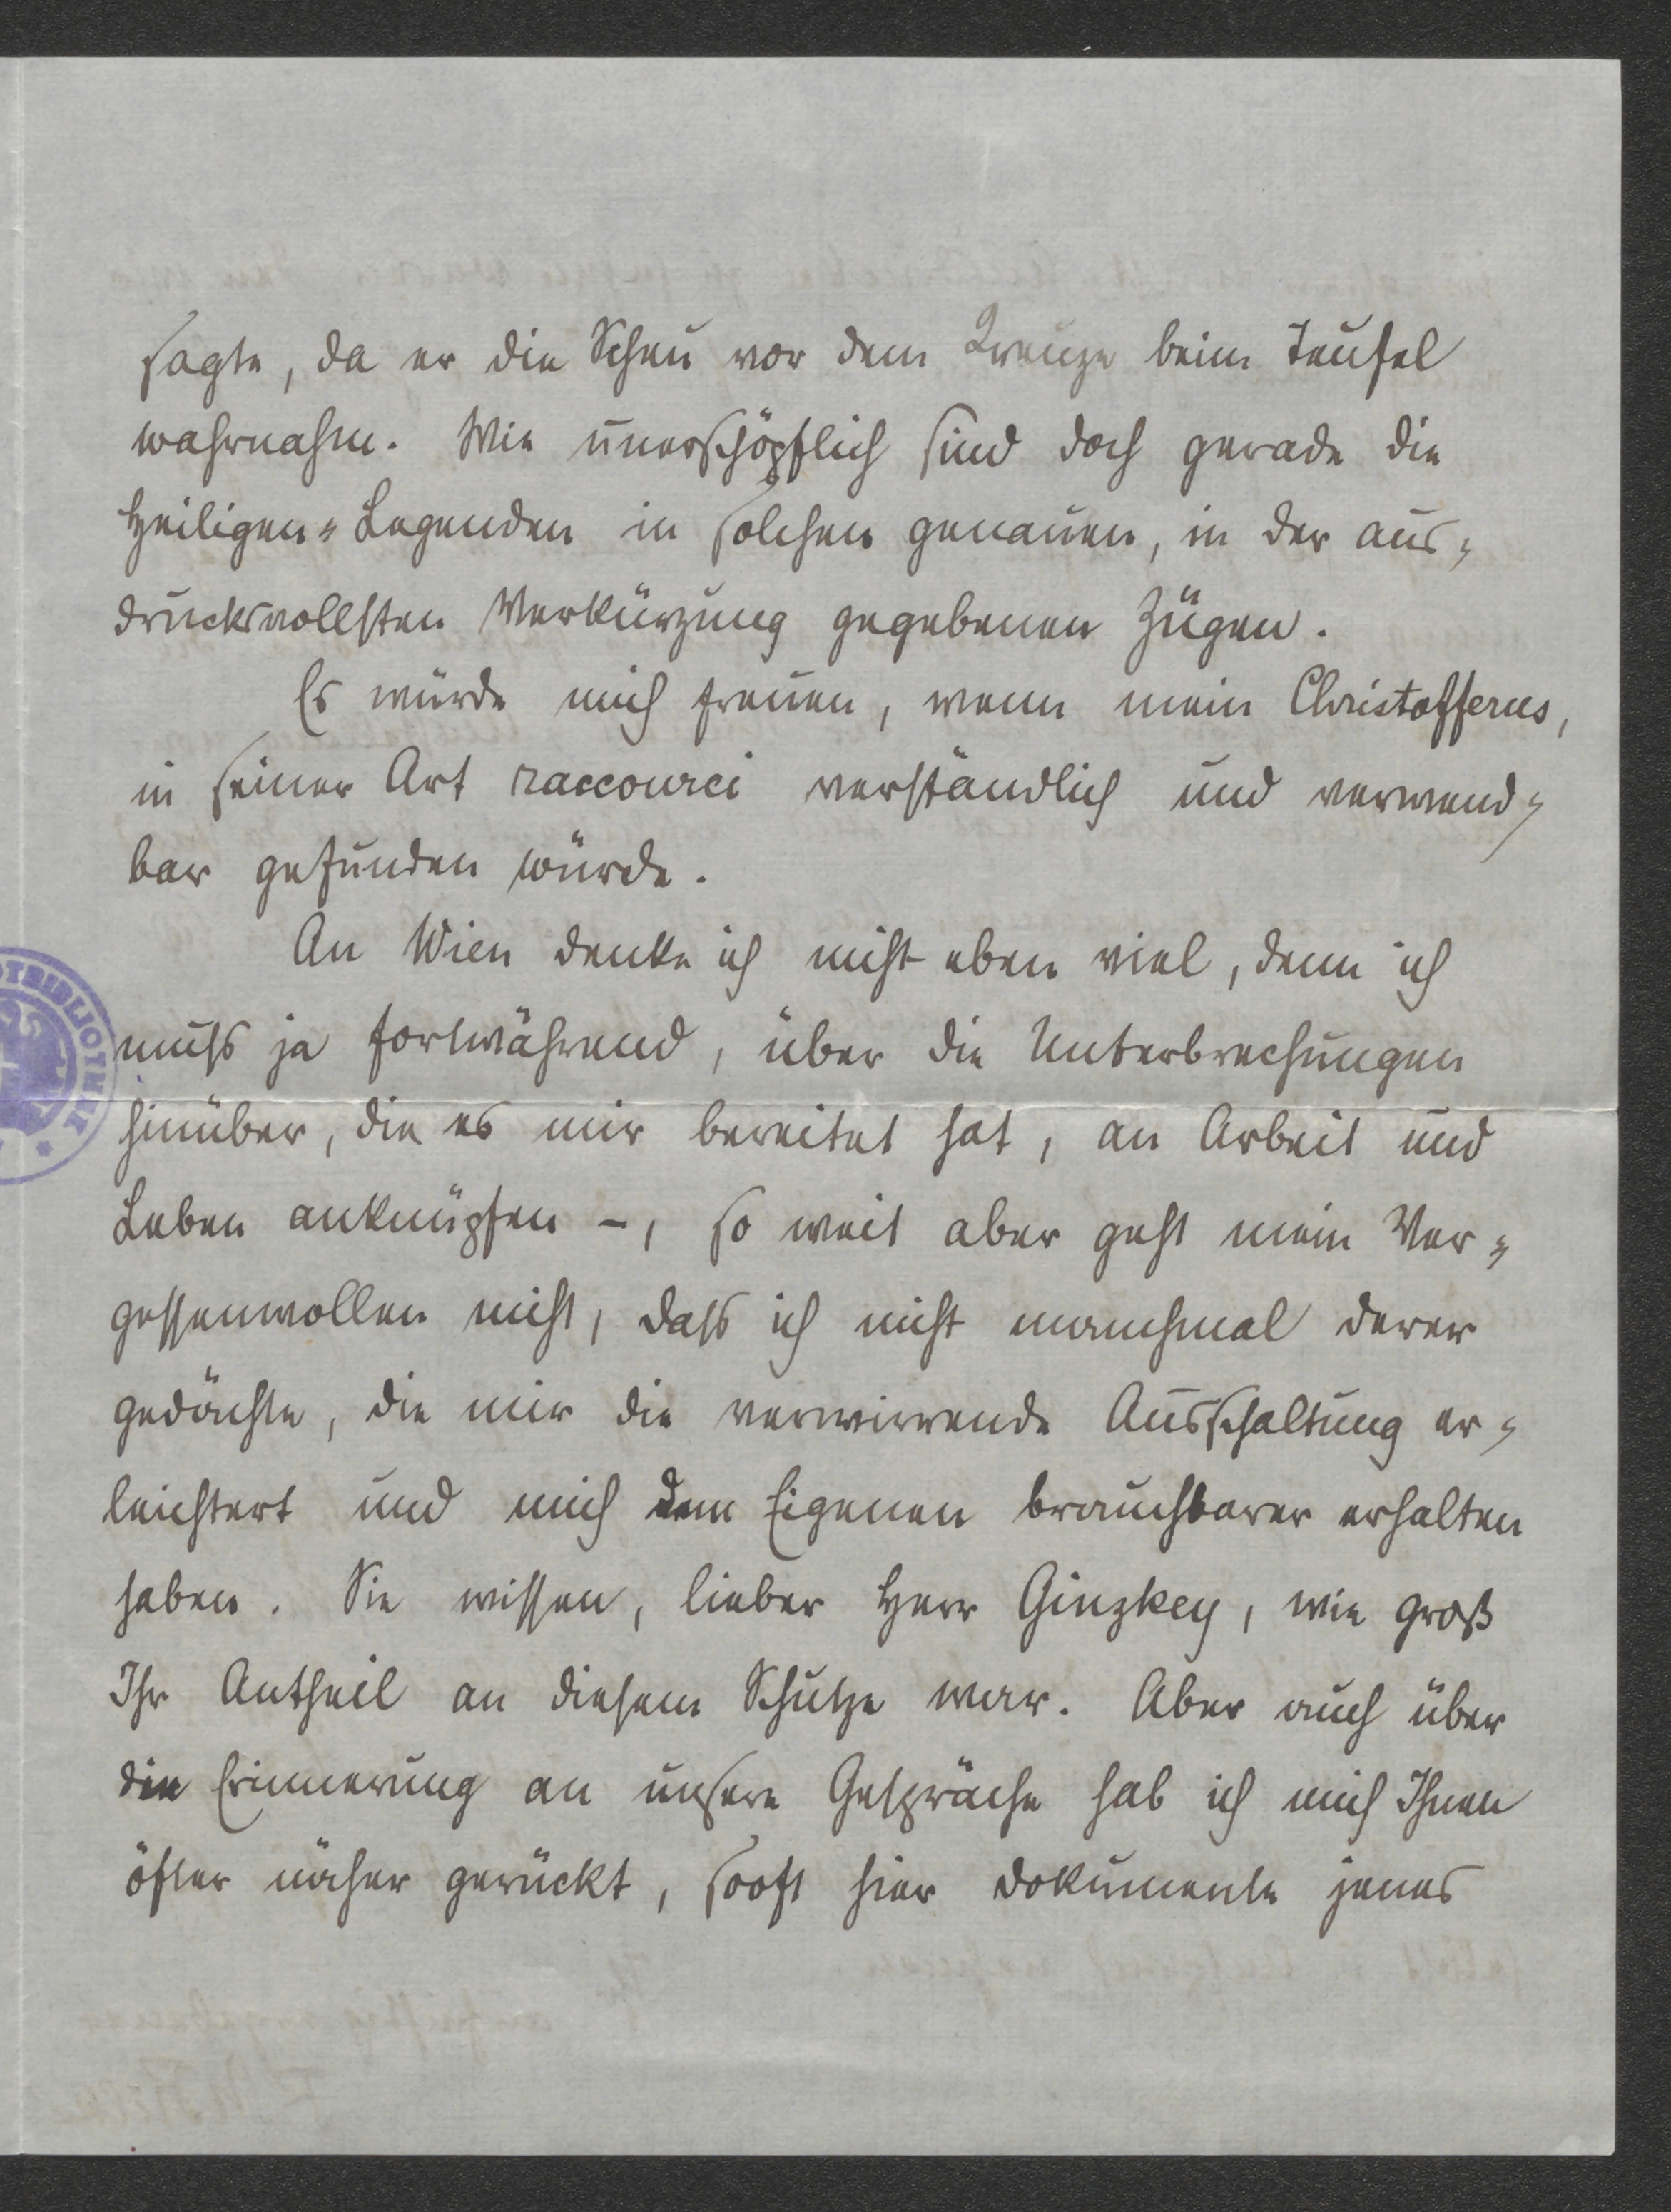 sagte, da er die Scheu vor dem Kreuze beim Teufel
wahrnahm. Wie unerschöpflich sind doch gerade die
Heiligen-Legenden in solchen genauen, in der aus-
drucksvollsten Verkürzung gegebenen Zügen.
Es würde mich freuen, wenn mein Christofferus,
in seiner Art raccourci verständlich und verwend-
bar gefunden würde.
An Wien denke ich nicht eben viel, denn ich
muss ja fortwährend, über die Unterbrechungen
hinüber, die es mir bereitet hat, an Arbeit und
Leben anknüpfen –, so weit aber geht mein Ver-
gessenwollen nicht, dass ich nicht manchmal derer
gedächte, die mir die verwirrende Ausschaltung er-
leichtert und mich dem Eigenen brauchbarer erhalten
haben. Sie wissen, lieber Herr Ginzkey, wie groß
Ihr Antheil an diesem Schutze war. Aber auch über
die Erinnerung an unsere Gespräche hab ich mich Ihnen
öfter näher gerückt, sooft hier Dokumente jenes
OTBIBLIOTHEK